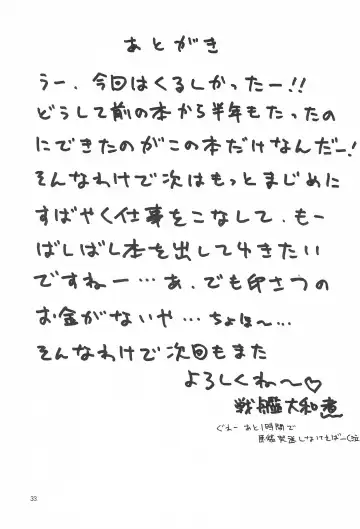 あとがき
うー、今回はくるしかったー!!
どうして前の本から半年もたったの
にできたのがこの本だけなんだー!
そんなわけで次はもっとまじめに
すばやく仕事をこなして、もー
ばしばし本を出して4きたい
ですねー…あ、でも印さつの
お金がないや…ちょほ〜…
そんなわけで次回もまた
よろしくね〜♡
戦艦大和煮
ぐえー あと1時間で
発送しなければー(泣
33